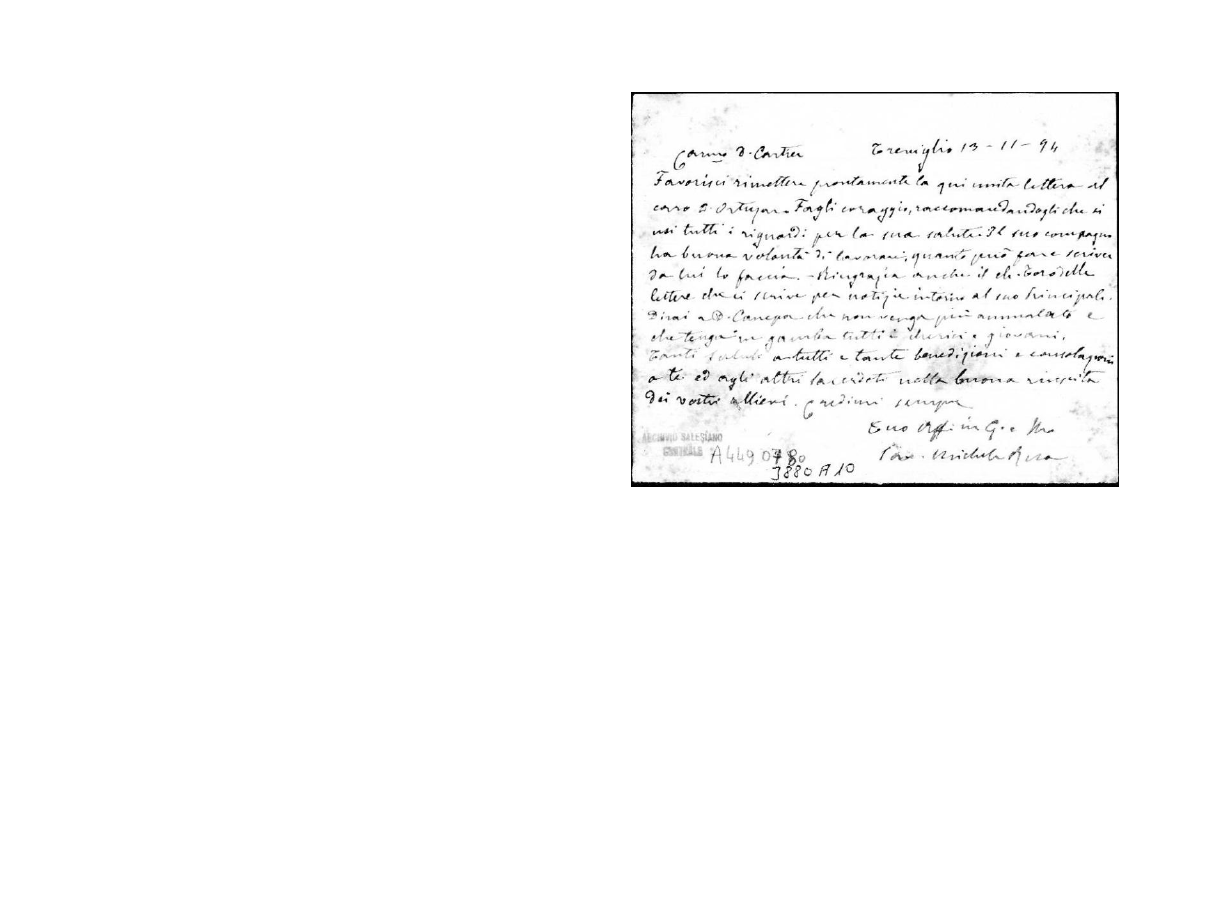 Car.mo D. Cartier Treviglio 13-11-94
Favorisci rimettere prontamente la qui unita lettera al
caro D. Ortuzar. Fagli coraggio, raccomandandogli che si
usi tutti i riguardi per la sua salute. Il suo compagno
ha buona volontà di lavorare, quanto può fare e scriver
da lui lo faccia. - Ringrazia anche il ch. Torò delle
lettere che ci scrive per notizie intorno al suo Principali.
Dirai a D. Canepa che non venga più ammalato e
che tenga in gamba tutti i chierici e giovani.
Tanti saluti a tutti e tante benedizioni e consolazioni
a te ed agli altri sacerdoti nella buona riuscita
dei vostri allievi. Credimi sempre
Tuo Aff. in G. e Ma
Sac. Michele Rua
ARCHIVIO SALESIANO
CENTRALE
A4490780
3880 A 10